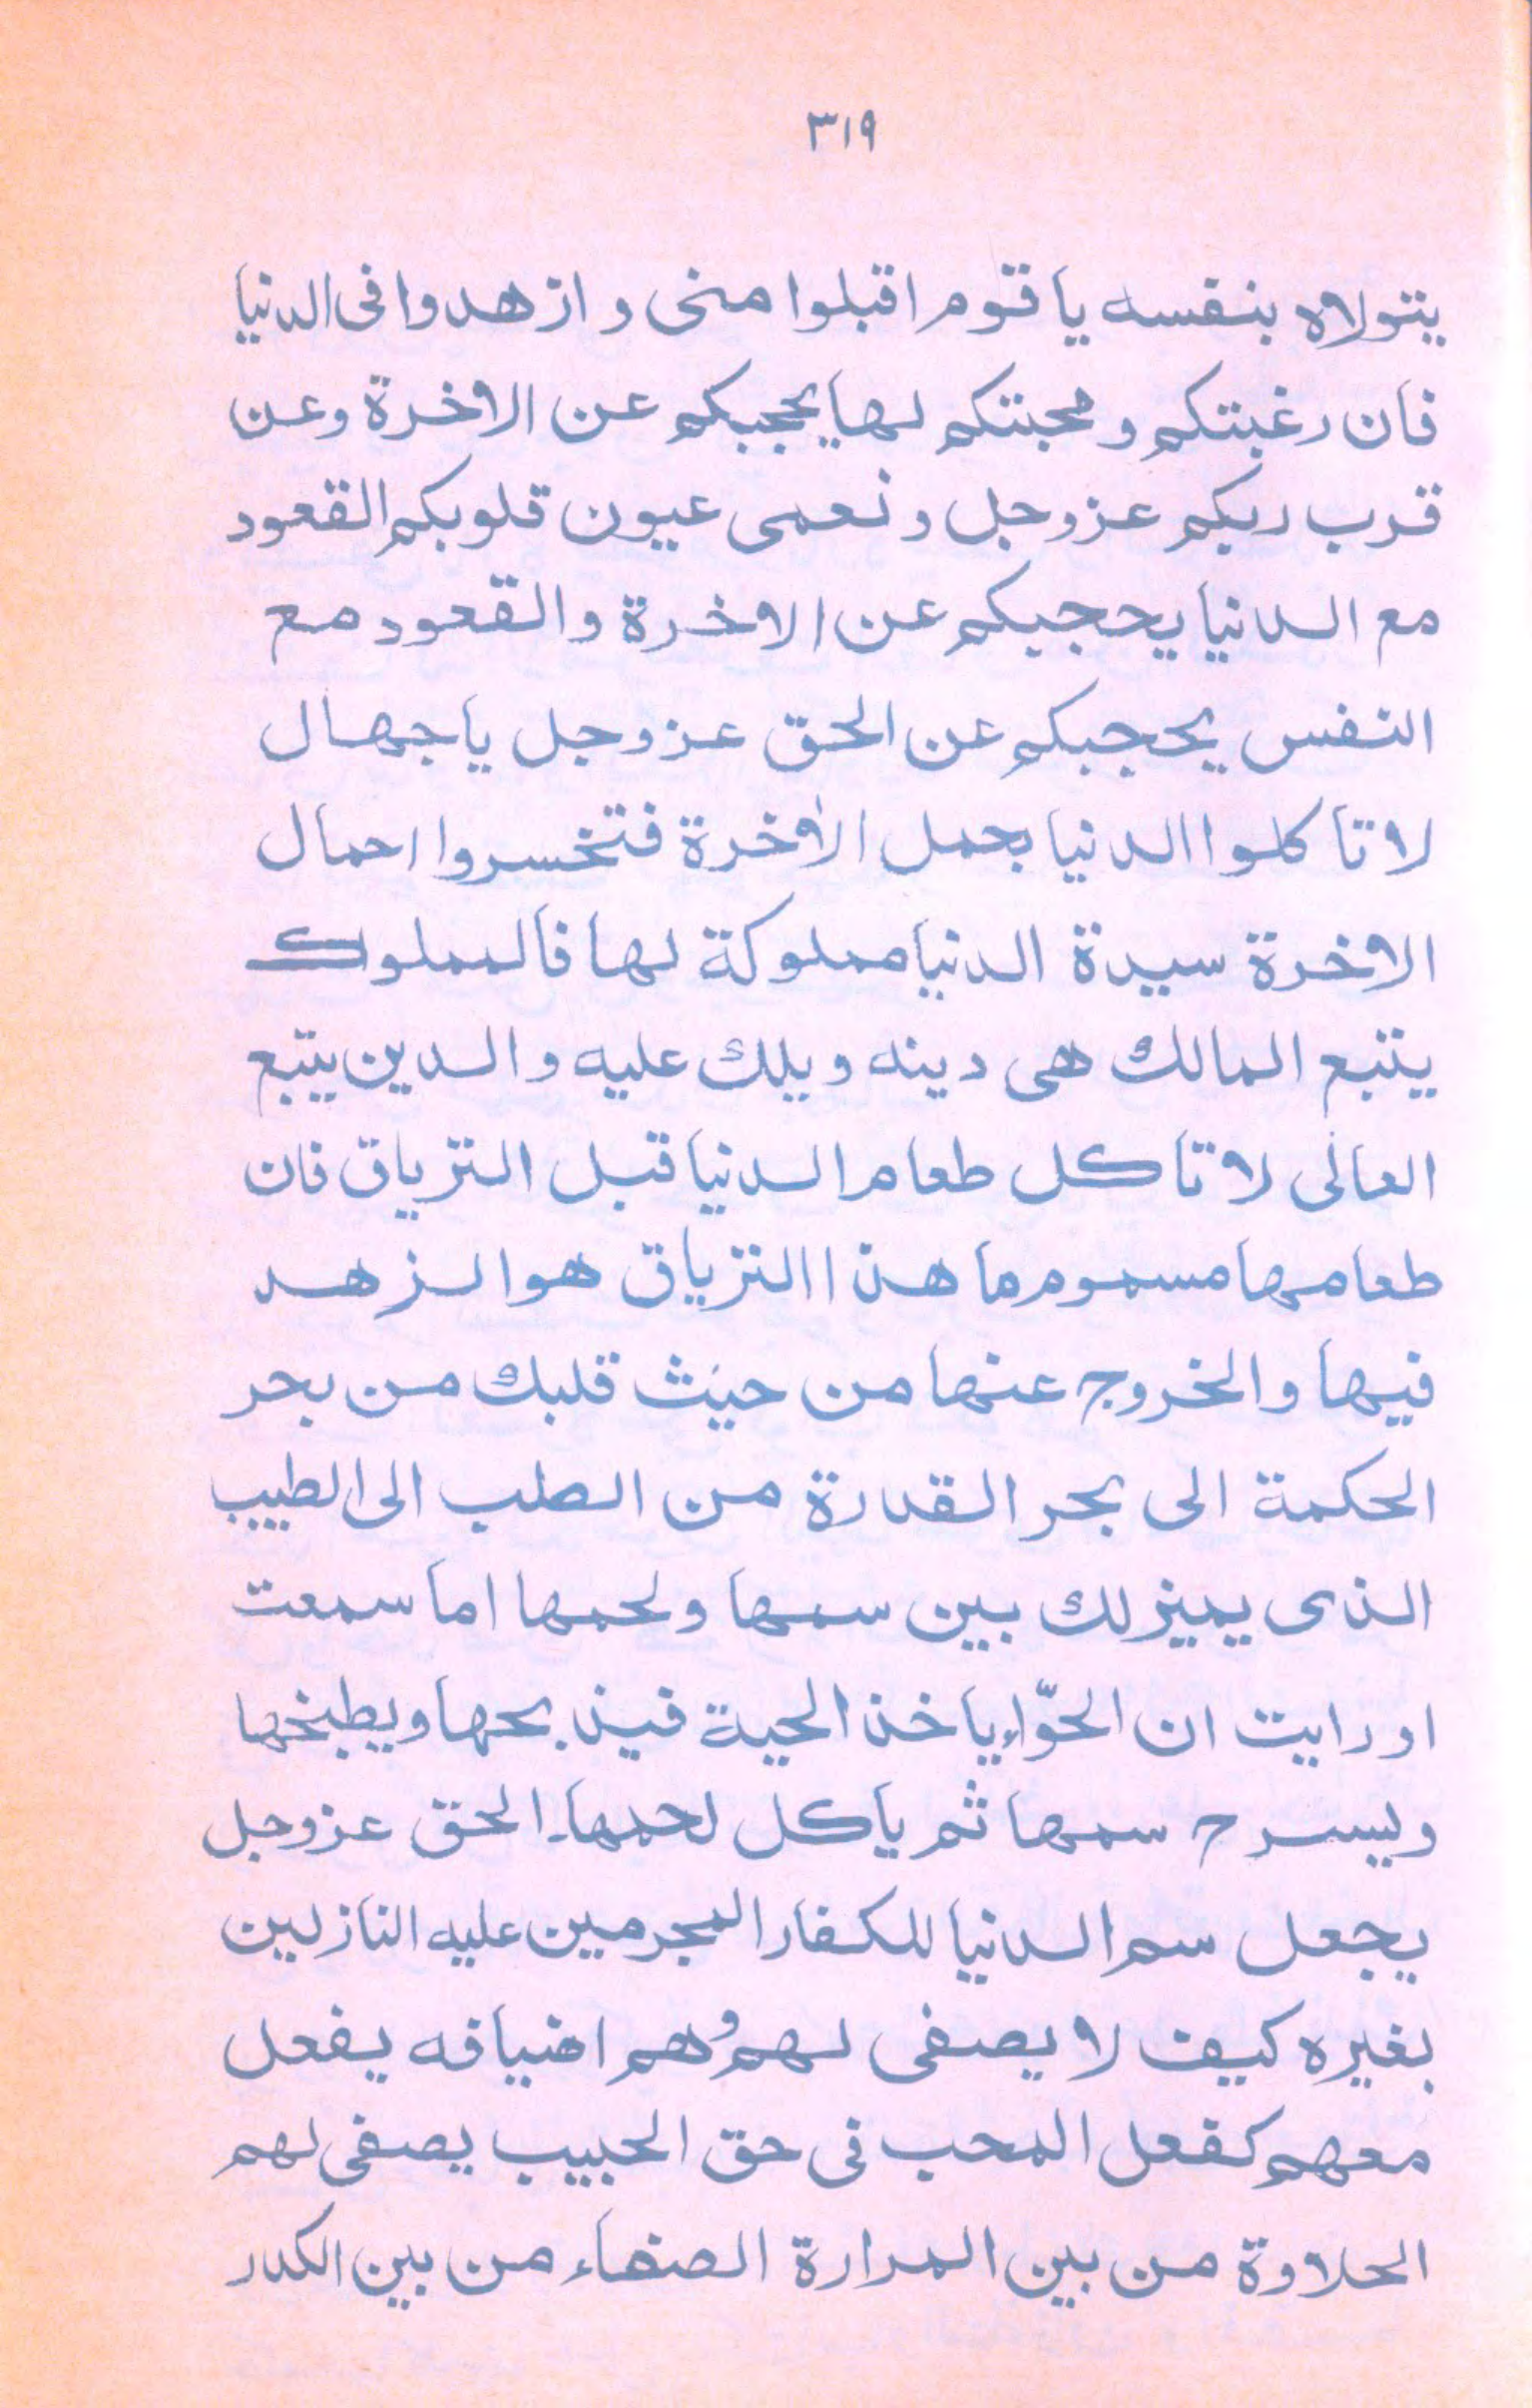 ٣١٩
يتولاه بنفسه يا قوم اقبلوا منى و ازهدوا فى الدنيا
فان رغبتكم و محبتكم لها يحجبكم عن الاخرة وعن
قرب ربكم عزوجل و نعمى عيون قلوبكم القعود
مع الدنيا يحجبكم عن الاخرة والقعود مع
النفس يحجبكم عن الحق عزوجل يا جهال
لا تاكلوا الدنيا بحمل الاٰخرة فتخسروا احمال
الاخرة سيدة الدنيا مملوكة لها فالمملوك
يتبع المالك هى دينه و يلك عليه و الدين يتبع
العالى لا تاكل طعام الدنيا قبل الترياق فان
طعامها مسموم ما هذا الترياق هو الزهد
فيها والخروج عنها من حيث قلبك من بحر
الحكمة الى بحر القدرة من الطلب الى الطبيب
الذى يميز لك بين سمها و لحمها اما سمعت
او رايت ان الحوّاء ياخذ الحية فيذبحها ويطبخها
ويسرح سمها ثم ياكل لحمها۔ الحق عزوجل
يجعل سم الدنيا للكفار المجرمين عليه النازلين
بغيره كيف لا يصفى لهم وهم اضيافه يفعل
معهم كفعل المحب فى حق الحبيب يصفى لهم
الحلاوة من بين المرارة الصفاء من بين الكدر